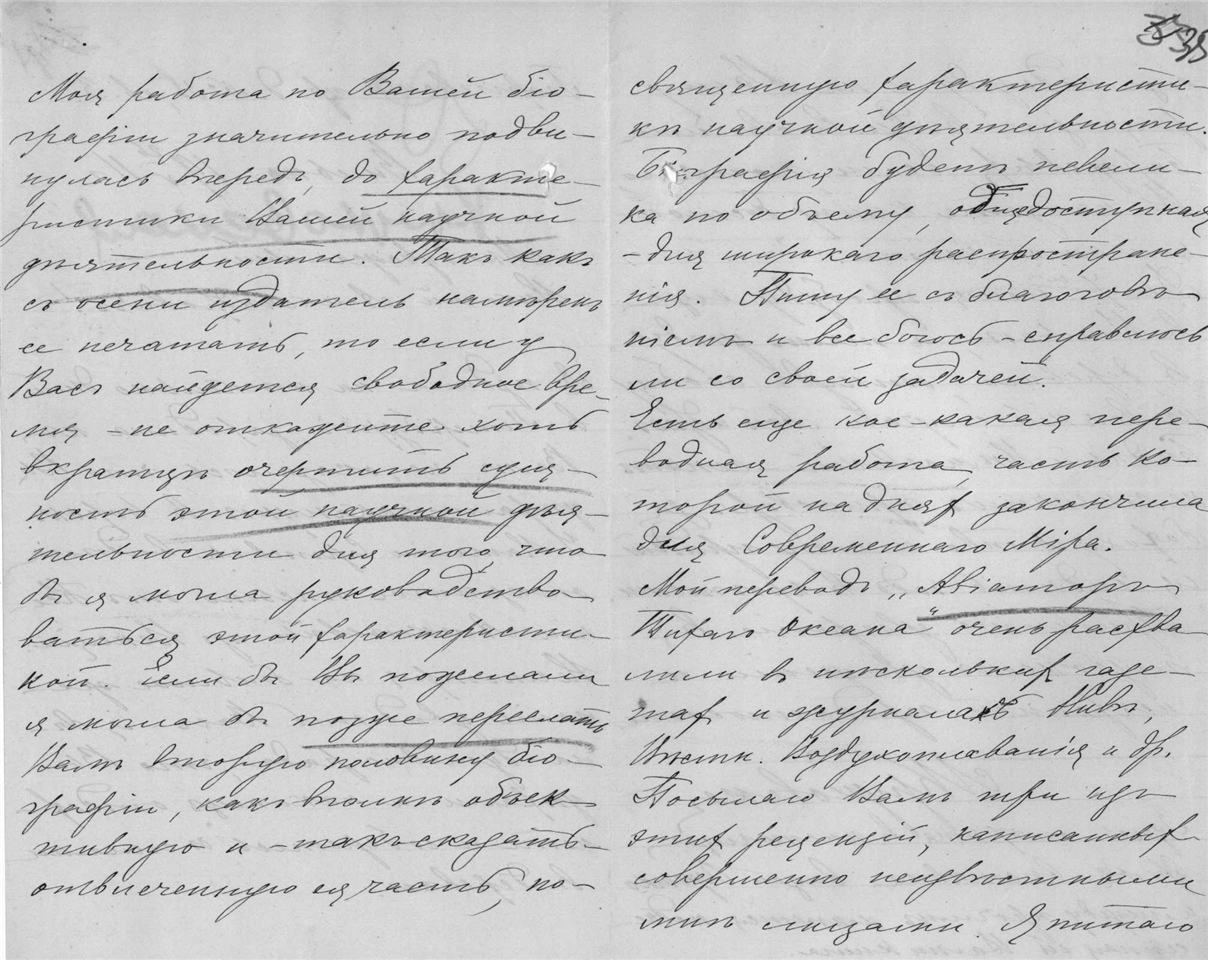 Моя работа по Вашей біо-
графіи значительно подви-
нулась впередъ, до характе-
ристики Вашей научной
дѣятельности. Такъ какъ
съ осени издатель намѣренъ
ее печатать, то если у
Васъ найдется свободное вре-
мя – не откажите хоть
вкратцѣ очертить сущ-
ность этой научной дѣя-
тельности для того, что-
бъ я могла руководство-
ваться этой характеристи-
кой. Если бъ Вы пожелали
я могла бъ позже переслать
Вамъ вторую половину біо-
графіи, какъ вполнѣ объек-
тивную и – такъ сказать –
отвлеченную ея часть, по-
38
священную характеристи-
кѣ научной дѣятельности.
Біографія будетъ невели-
ка по объему, общедоступная
– для широкаго распростране-
нія. Пишу ее съ благоговѣ-
ніемъ и все боюсь – справлюсь
ли со своей задачей.
Есть еще кое-какая пере-
водная работа, часть ко-
торой на дняхъ закончила
для Современнаго Міра.
Мой переводъ „Авіаторъ
Тихаго Океана“ очень расхва-
лили въ нѣсколькихъ газе-
тахъ и журналахъ Нивѣ,
Вѣстн. Воздухоплаванія и др.
Посылаю Вамъ три изъ
этихъ рецензій, написанныхъ
совершенно неизвѣстными
мнѣ лицами. Я питаю